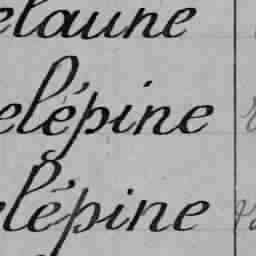 elaune
elépine
elépine